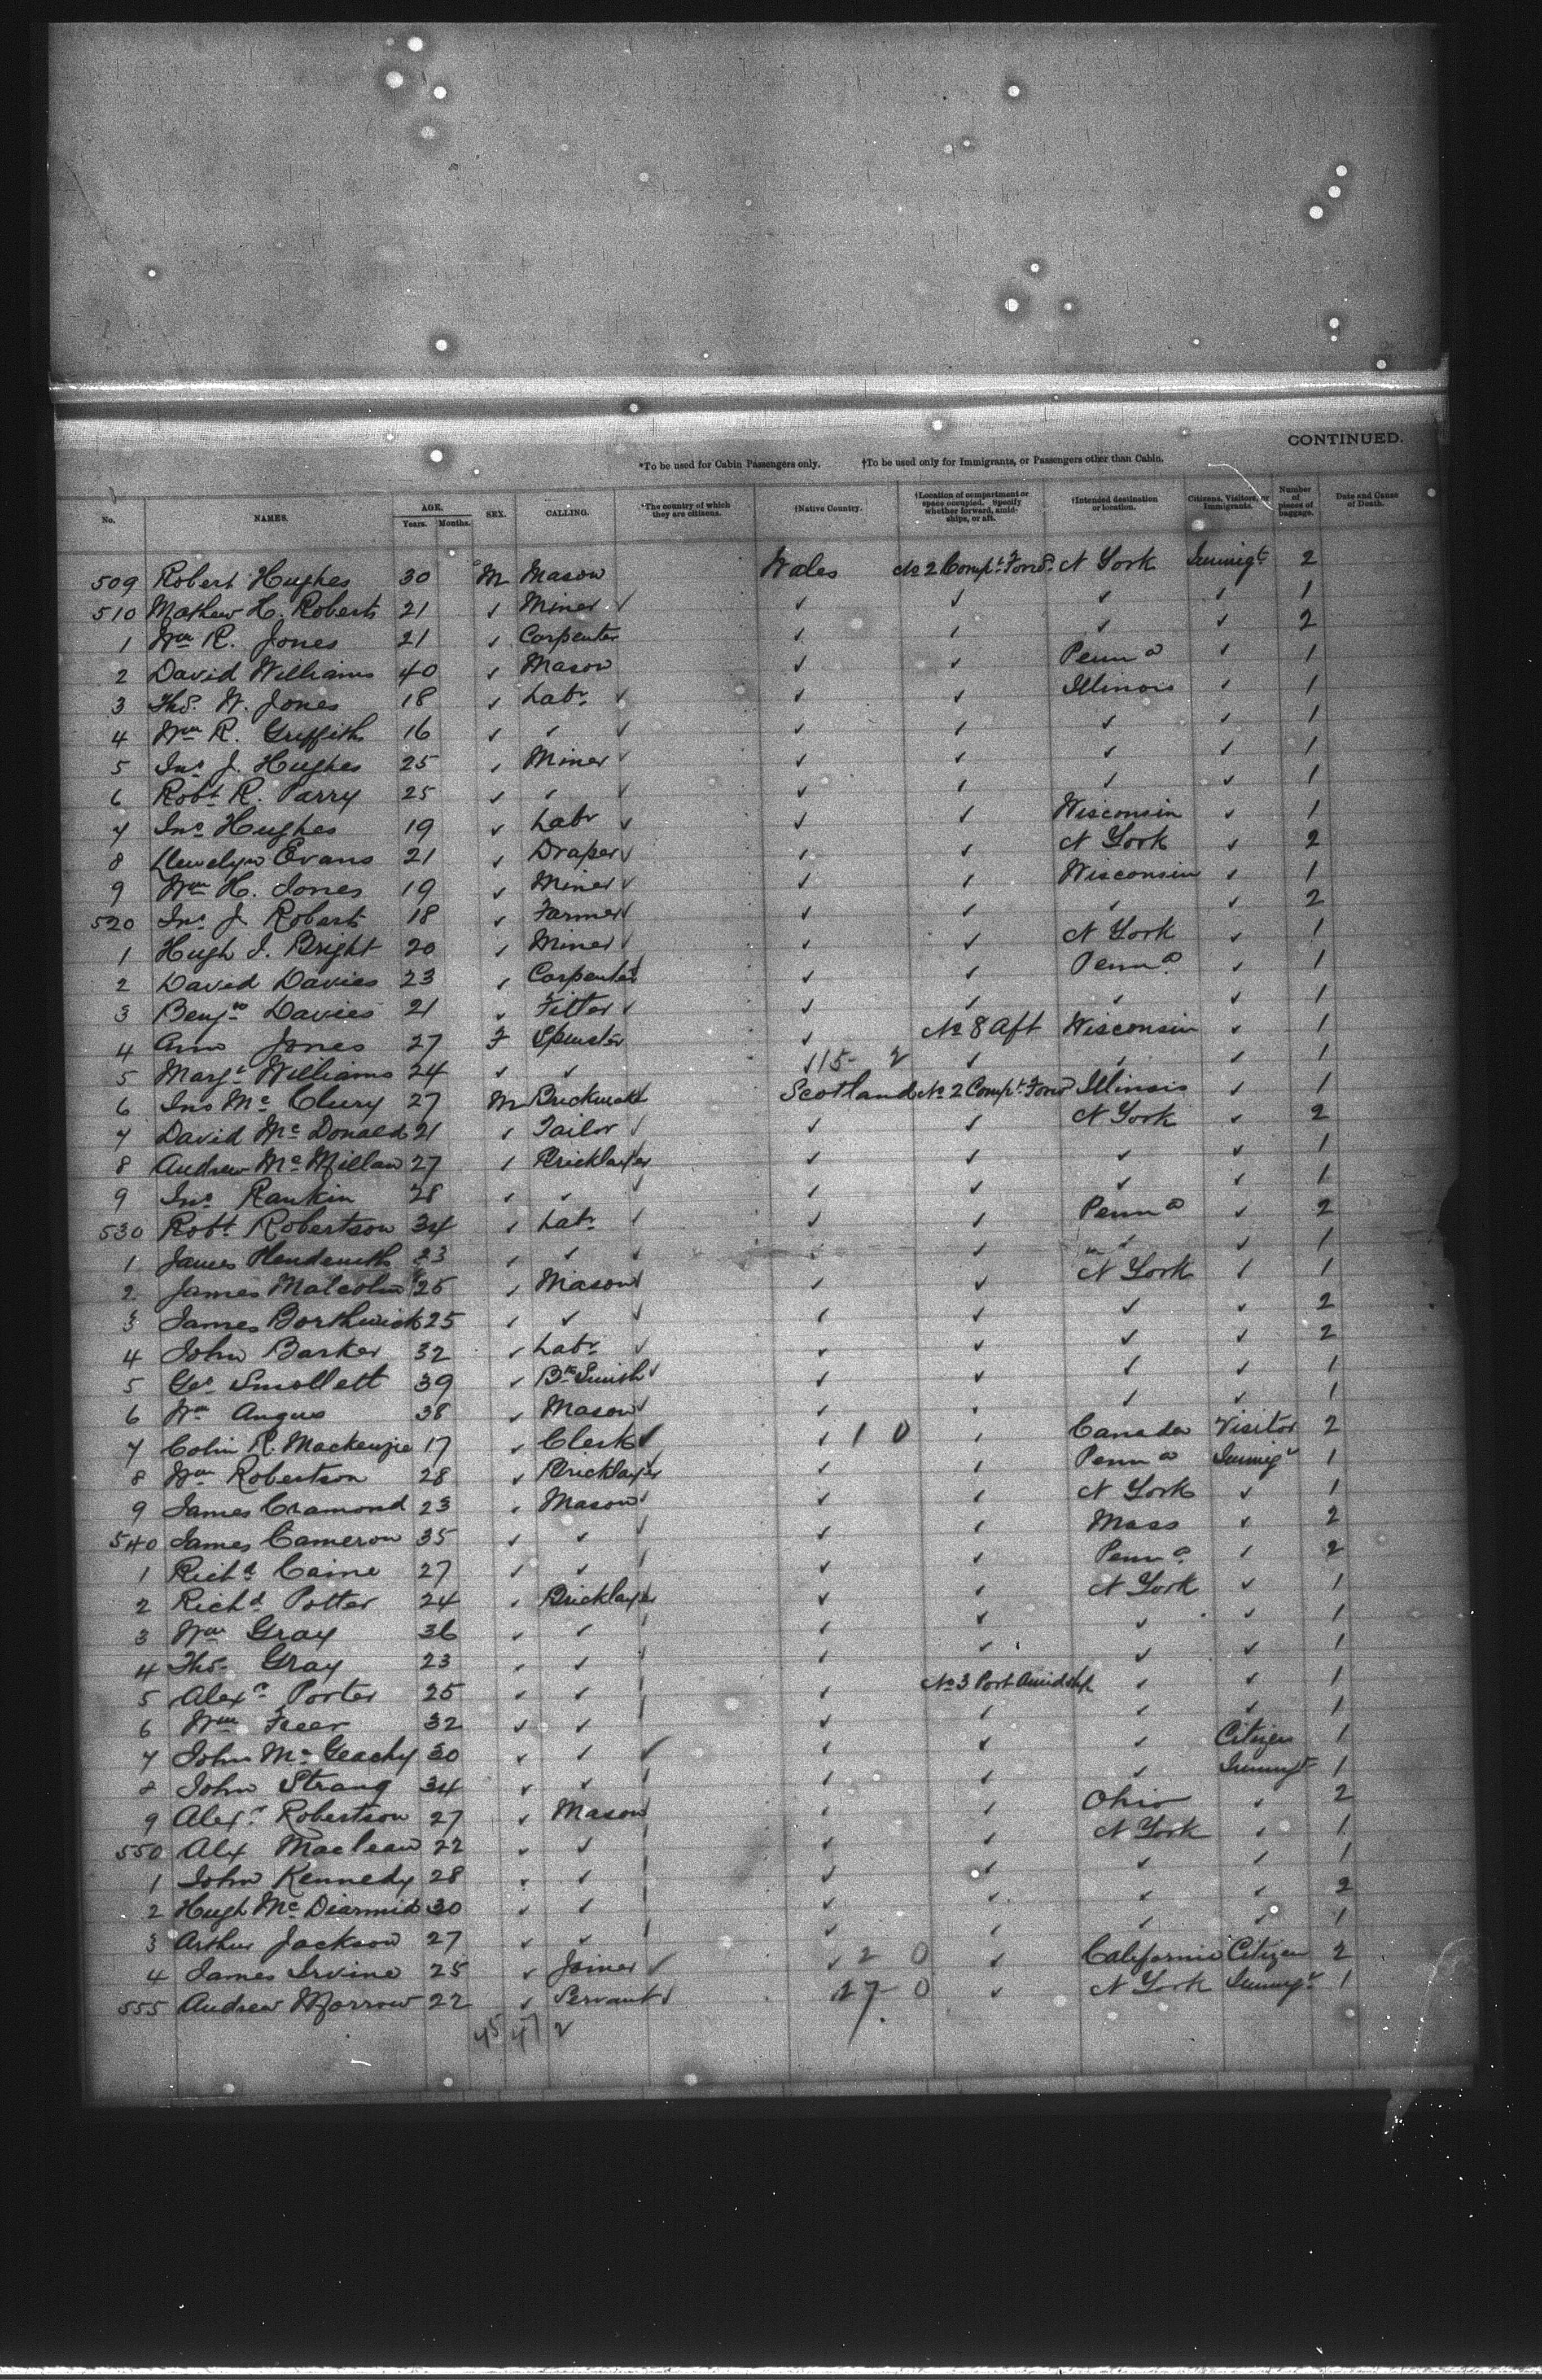 CONTINUED.
*To be used for Cabin Passengers only. †To be used only for Immigrants, or Passengers other than Cabin.
No. NAMES. AGE. Years. Months. SEX. CALLING. *The country of which they are citizens. †Native Country. †Location of compartment or space occupied. Specify whether forward, amidships, or aft. †Intended destination or location. Citizens, Visitors, or Immigrants. Number of pieces of baggage. Date and Cause of Death.
509 Robert Hughes 30 M Mason Wales No 2 Compt. Forwd. N York Immigt 2
510 Mathew H. Roberts 21 ✓ Miner ✓ ✓ ✓ ✓ ✓ 1
1 Wm R. Jones 21 ✓ Carpenter ✓ ✓ ✓ ✓ 2
2 David Williams 40 ✓ Mason ✓ ✓ Penna ✓ 1
3 Thos. W. Jones 18 ✓ Labr. ✓ ✓ ✓ Illinois ✓ 1
4 Wm R. Griffith 16 ✓ ✓ ✓ ✓ ✓ ✓ ✓ 1
5 Jno J. Hughes 25 ✓ Miner ✓ ✓ ✓ ✓ ✓ 1
6 Robt R. Parry 25 ✓ ✓ ✓ ✓ ✓ ✓ ✓ 1
7 Jno Hughes 19 ✓ Labr ✓ ✓ ✓ Wisconsin ✓ 1
8 Llewelyn Evans 21 ✓ Draper ✓ ✓ ✓ N York ✓ 2
9 Wm H. Jones 19 ✓ Miner ✓ ✓ ✓ Wisconsin ✓ 1
520 Jno J. Roberts 18 ✓ Farmer ✓ ✓ ✓ ✓ ✓ 2
1 Hugh J. Bright 20 ✓ Miner ✓ ✓ ✓ N York ✓ 1
2 David Davies 23 ✓ Carpenter ✓ ✓ ✓ Penna. ✓ 1
3 Benjn Davies 21 ✓ Fitter ✓ ✓ ✓ ✓ ✓ 1
4 Ann Jones 27 F Spinster ✓ No 8 Aft Wisconsin ✓ 1
5 Margt Williams 24 ✓ ✓ ✓ 15- 2 ✓ ✓ ✓ 1
6 Jno Mc Clury 27 M ✓ Scotland No 2 Compt. Forwd Illinois ✓ 1
7 David Mc Donald 21 ✓ Tailor ✓ ✓ ✓ N York ✓ 2
8 Andrew Mc Millan 27 ✓ Bricklayer ✓ ✓ ✓ ✓ 1
9 Jno Rankin 28 ✓ ✓ ✓ ✓ ✓ ✓ ✓ 1
530 Robt Robertson 34 ✓ Labr. ✓ ✓ ✓ Penna ✓ 2
1 James 23 ✓ ✓ ✓ ✓ ✓ ✓ ✓ 1
2 James Malcolm 25 ✓ Mason ✓ ✓ ✓ N York ✓ 1
3 James Borthwick 25 ✓ ✓ ✓ ✓ ✓ ✓ ✓ 2
4 John Barker 32 ✓ Labr. ✓ ✓ ✓ ✓ ✓ 2
5 Geo Smollett 39 ✓ Bk Smith ✓ ✓ ✓ ✓ ✓ 1
6 Wm Angus 38 ✓ Mason ✓ ✓ ✓ ✓ ✓ 1
7 Colin R. Mackenzie 17 ✓ Clerk ✓ ✓ 1 0 ✓ Canada Visitor 2
8 Wm Robertson 28 ✓ Bricklayer ✓ ✓ Penna Immigt 1
9 James Cramond 23 ✓ Mason ✓ ✓ ✓ N York ✓ 1
540 James Cameron 35 ✓ ✓ ✓ ✓ ✓ Mass ✓ 2
1 Richd. Caine 27 ✓ ✓ ✓ ✓ ✓ Penna. ✓ 2
2 Richd. Potter 24 ✓ Bricklayer ✓ ✓ N York ✓ 1
3 Wm Gray 36 ✓ ✓ ✓ ✓ ✓ ✓ ✓ 1
4 Thos. Gray 23 ✓ ✓ ✓ ✓ ✓ ✓ ✓ 1
5 Alexr. Porter 25 ✓ ✓ ✓ ✓ No 3 Port Amidshp ✓ ✓ 1
6 Wm Freer 32 ✓ ✓ ✓ ✓ ✓ ✓ ✓ 1
7 John Mc Geachy 30 ✓ ✓ ✓ ✓ ✓ ✓ Citizen 1
8 John Strang 34 ✓ ✓ ✓ ✓ ✓ ✓ Immigt 1
9 Alexr. Robertson 27 ✓ Mason ✓ ✓ ✓ Ohio ✓ 2
550 Alx Maclean 22 ✓ ✓ ✓ ✓ ✓ N York ✓ 1
1 John Kennedy 28 ✓ ✓ ✓ ✓ ✓ ✓ ✓ 1
2 Hugh Mc Diarmid 30 ✓ ✓ ✓ ✓ ✓ ✓ ✓ 2
3 Arthur Jackson 27 ✓ ✓ ✓ ✓ ✓ ✓ ✓ 1
4 James Irvine 25 ✓ Joiner ✓ ✓ 2 0 ✓ California Citizen 2
555 Andrew Morrow 22 ✓ Servant ✓ 27 0 ✓ N York Immigt. 1
45 47 2